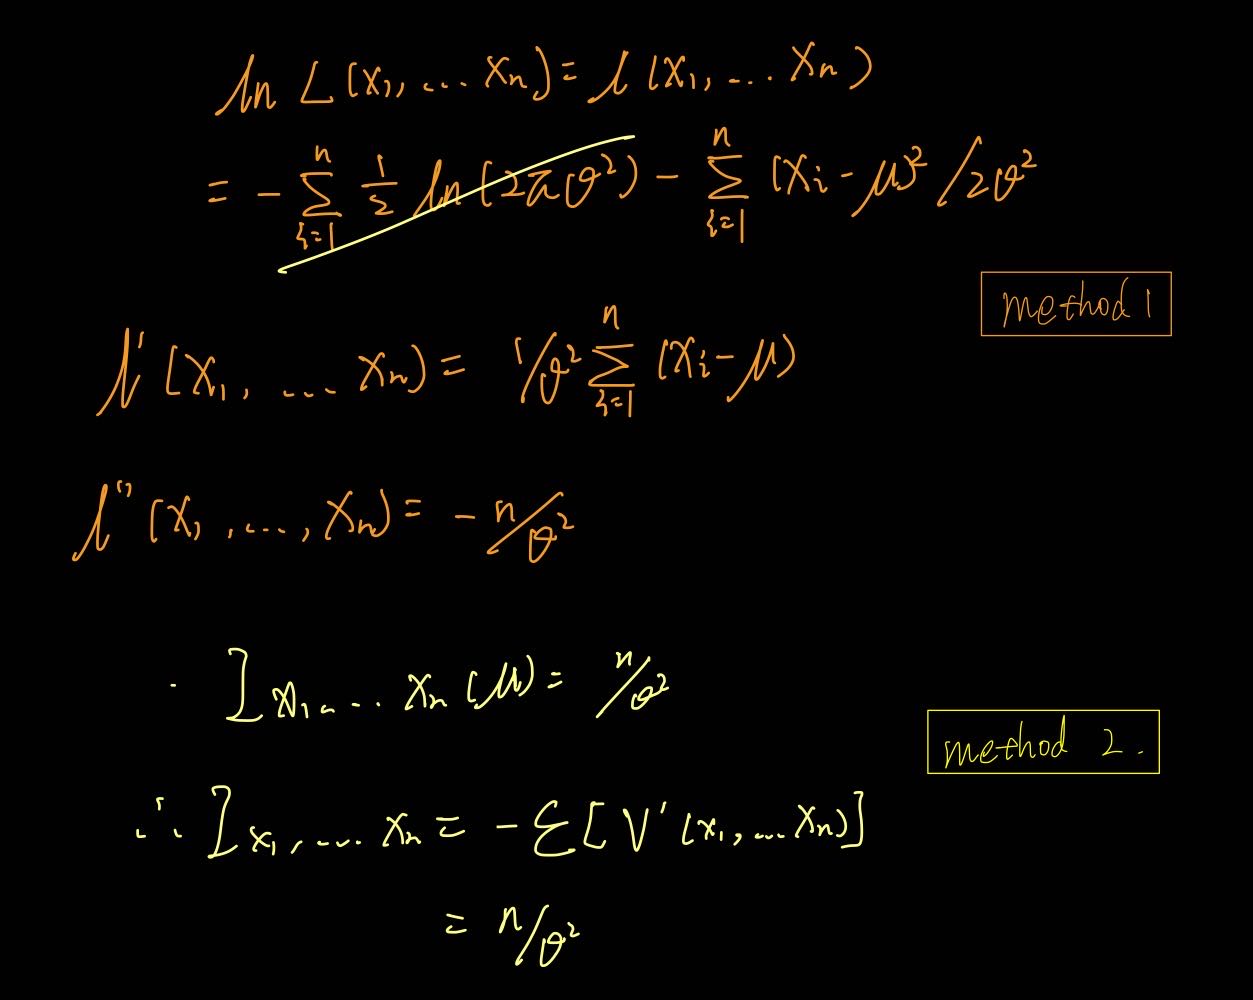 ln L(x₁, ... xₙ) = l(x₁, ... xₙ)
= - ∑ⁿᵢ₌₁ 1/2 ln(2πσ²) - ∑ⁿᵢ₌₁ (xᵢ - μ)² / 2σ²
method 1
l' (x₁, ... xₙ) = 1/σ² ∑ⁿᵢ₌₁ (xᵢ - μ)
l'' (x₁, ..., xₙ) = - n/σ²
· I x₁, ... xₙ (μ) = n/σ²
method 2.
∴ I x₁, ... xₙ = - E[V' (x₁, ... xₙ)]
= n/σ²